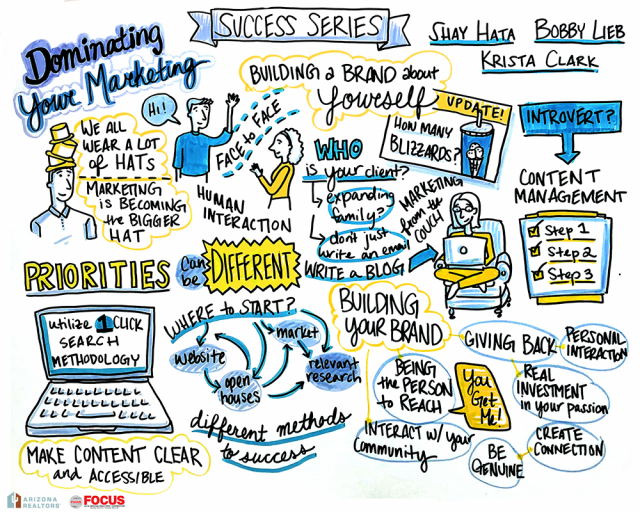 Dominating
Your Marketing
SUCCESS SERIES
SHAY HATA
BOBBY LIEB
KRISTA CLARK
Hi!
WE ALL
WEAR A LOT
of HATS
MARKETING
is BECOMING
the BIGGER
HAT
FACE to FACE
HUMAN
INTERACTION
BUILDING a BRAND about
yourself
UPDATE!
HOW MANY
BLIZZARDS?
WHO
is your client?
expanding
family?
dont just
write an email
WRITE a BLOG
MARKETING
from the
COUCH
INTROVERT?
CONTENT
MANAGEMENT
Step 1
Step 2
Step 3
PRIORITIES
can
be
DIFFERENT
utilize 1 CLICK
SEARCH
METHODOLOGY
MAKE CONTENT CLEAR
and ACCESSIBLE
WHERE to START?
website
market
open
houses
relevant
research
different methods
to success
BUILDING
your BRAND
GIVING BACK
PERSONAL
INTERACTION
REAL
INVESTMENT
in your passion
BEING
the PERSON
to REACH
You
Get
Me!
INTERACT w/ your
Community
CREATE
CONNECTION
BE
GENUINE
ARIZONA
REALTORS
FOCUS